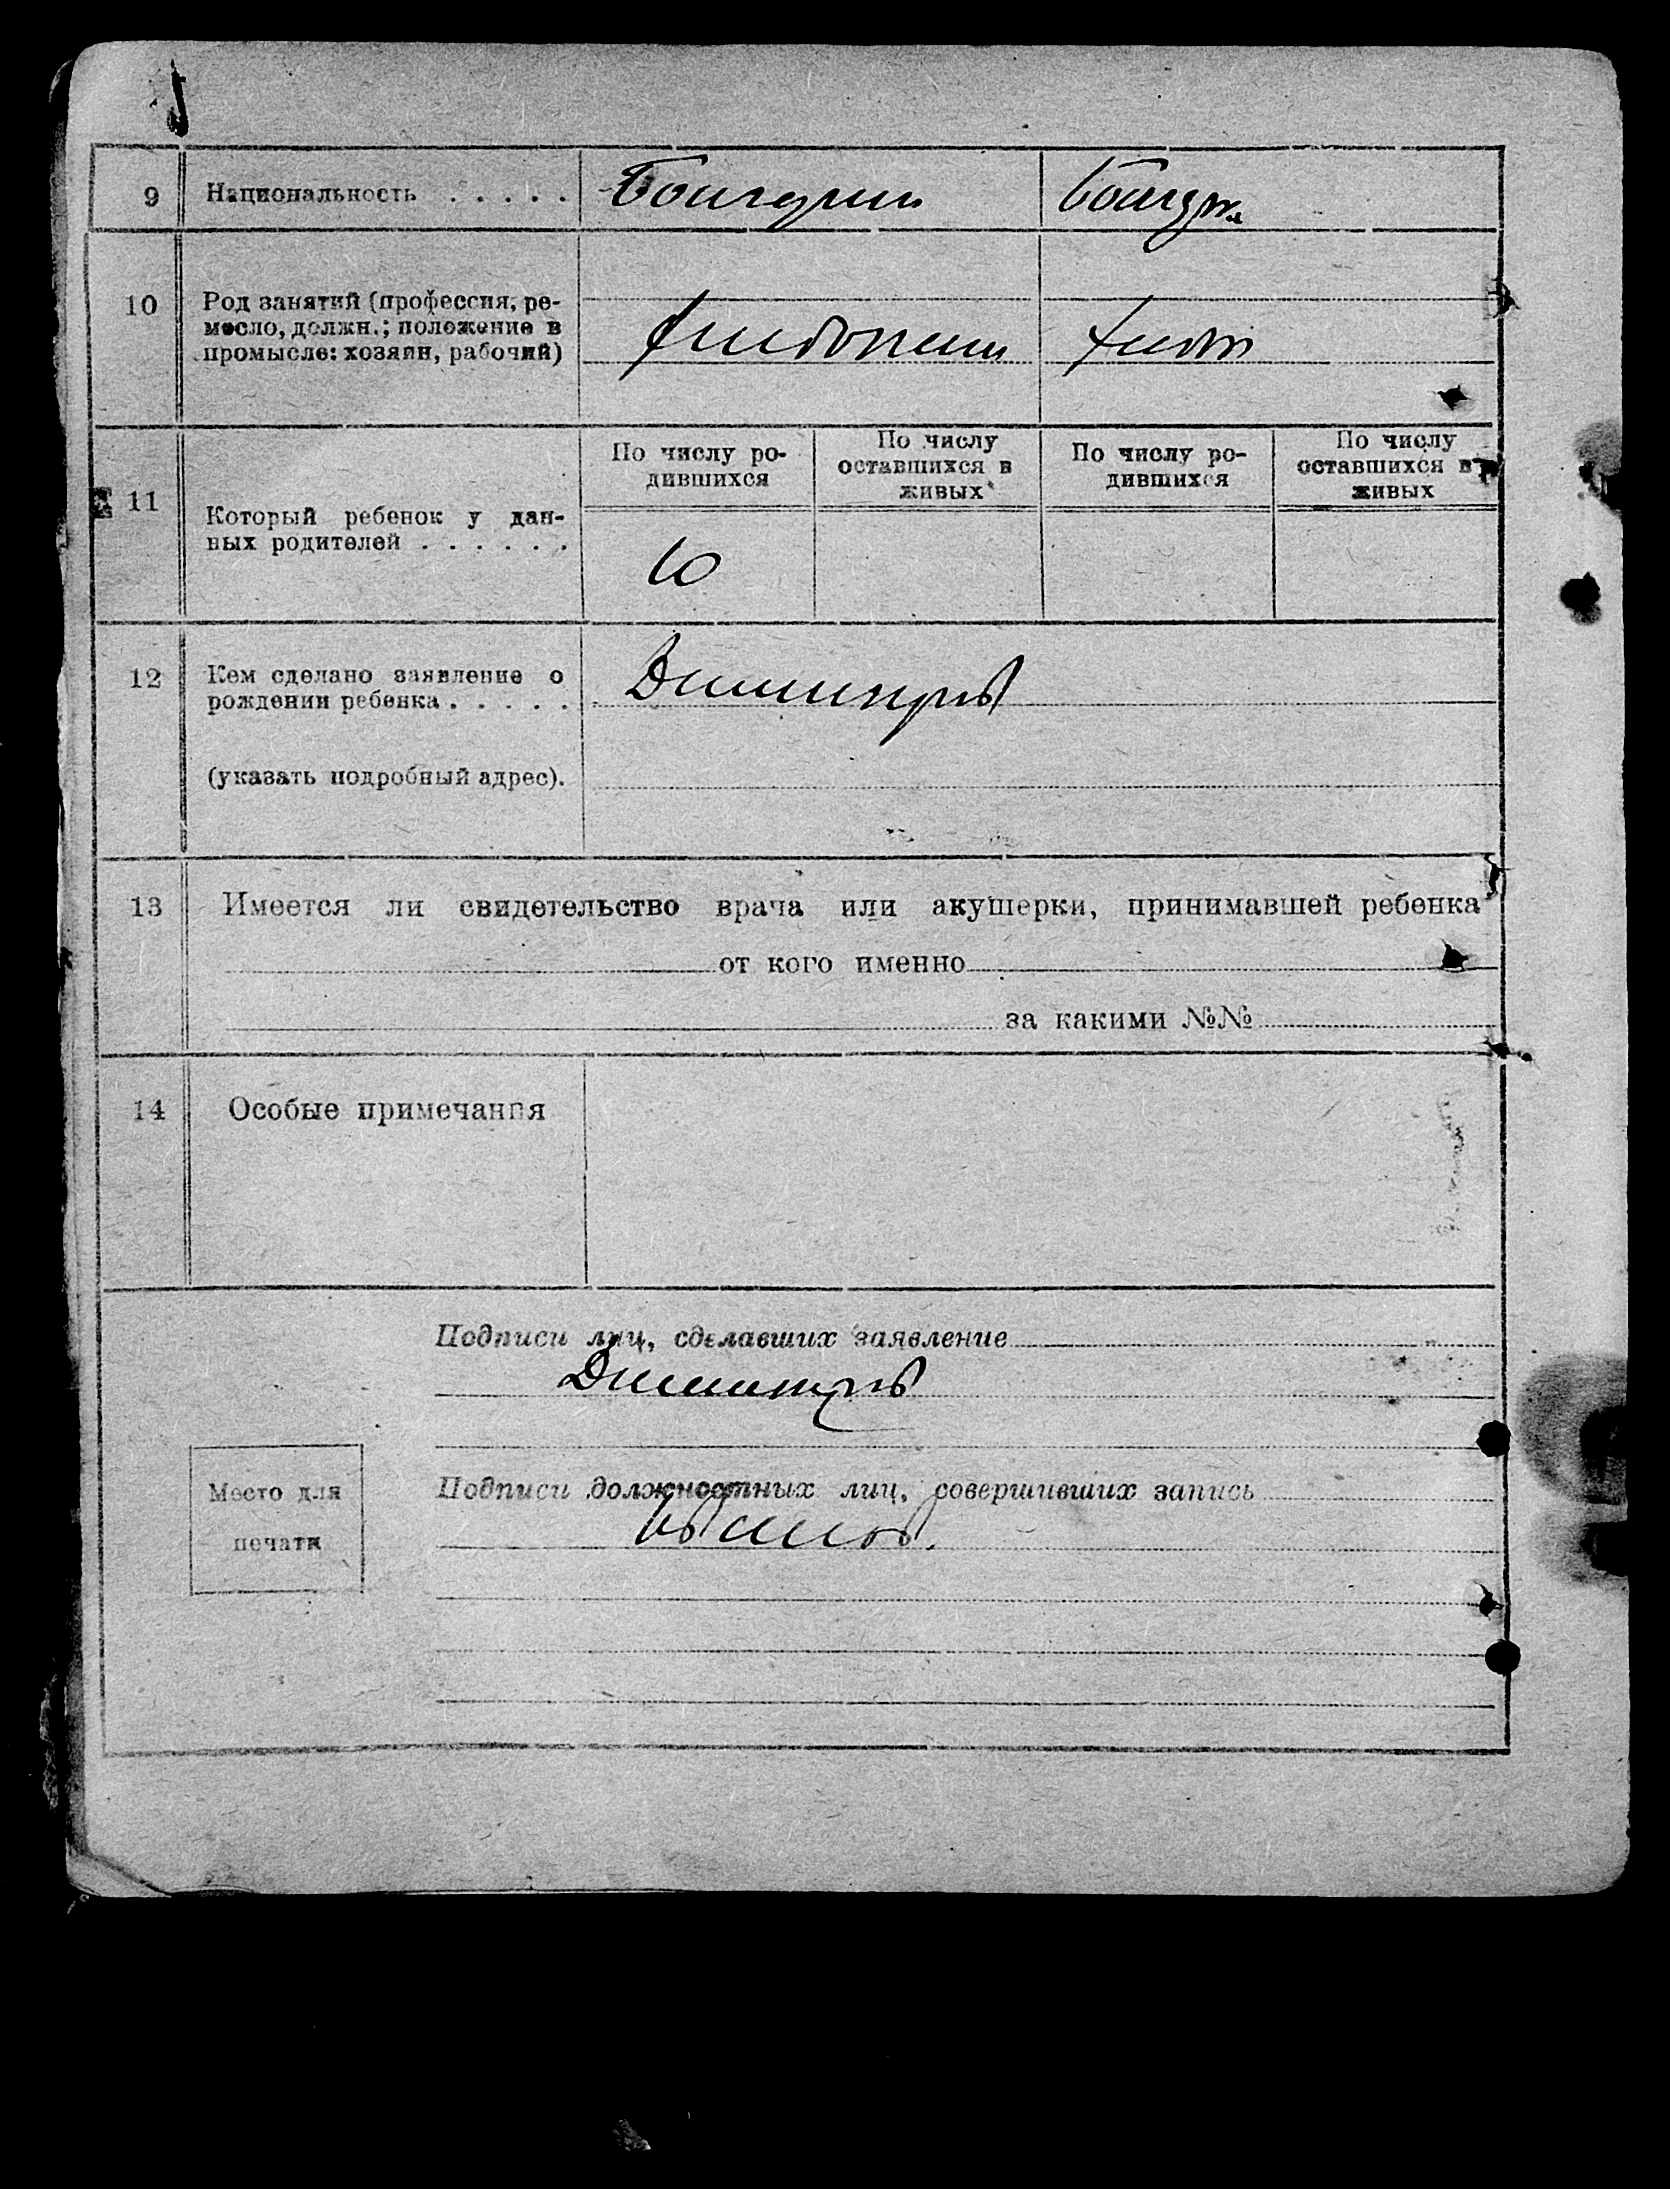 9 Национальность . . . . . Болгарин Болгарк
10 Род занятий (профессия, ре-
месло, должн.; положение в
промысле: хозяин, рабочий)
хлебопаш хлебоп
По числу ро-
дившихся
По числу
оставшихся в
живых
По числу ро-
дившихся
По числу
оставшихся в
живых
11 Который ребенок у дан-
ных родителей . . . . . .
12 Кем сделано заявление о
рождении ребенка . . . . .
Димитров
(указать подробный адрес).
13 Имеется ли свидетельство врача или акушерки, принимавшей ребенка
от кого именно
за какими №№
14 Особые примечания
Подписи лиц, сделавших заявление
Димитров
Подписи должностных лиц, совершивших запись
Место для
печати